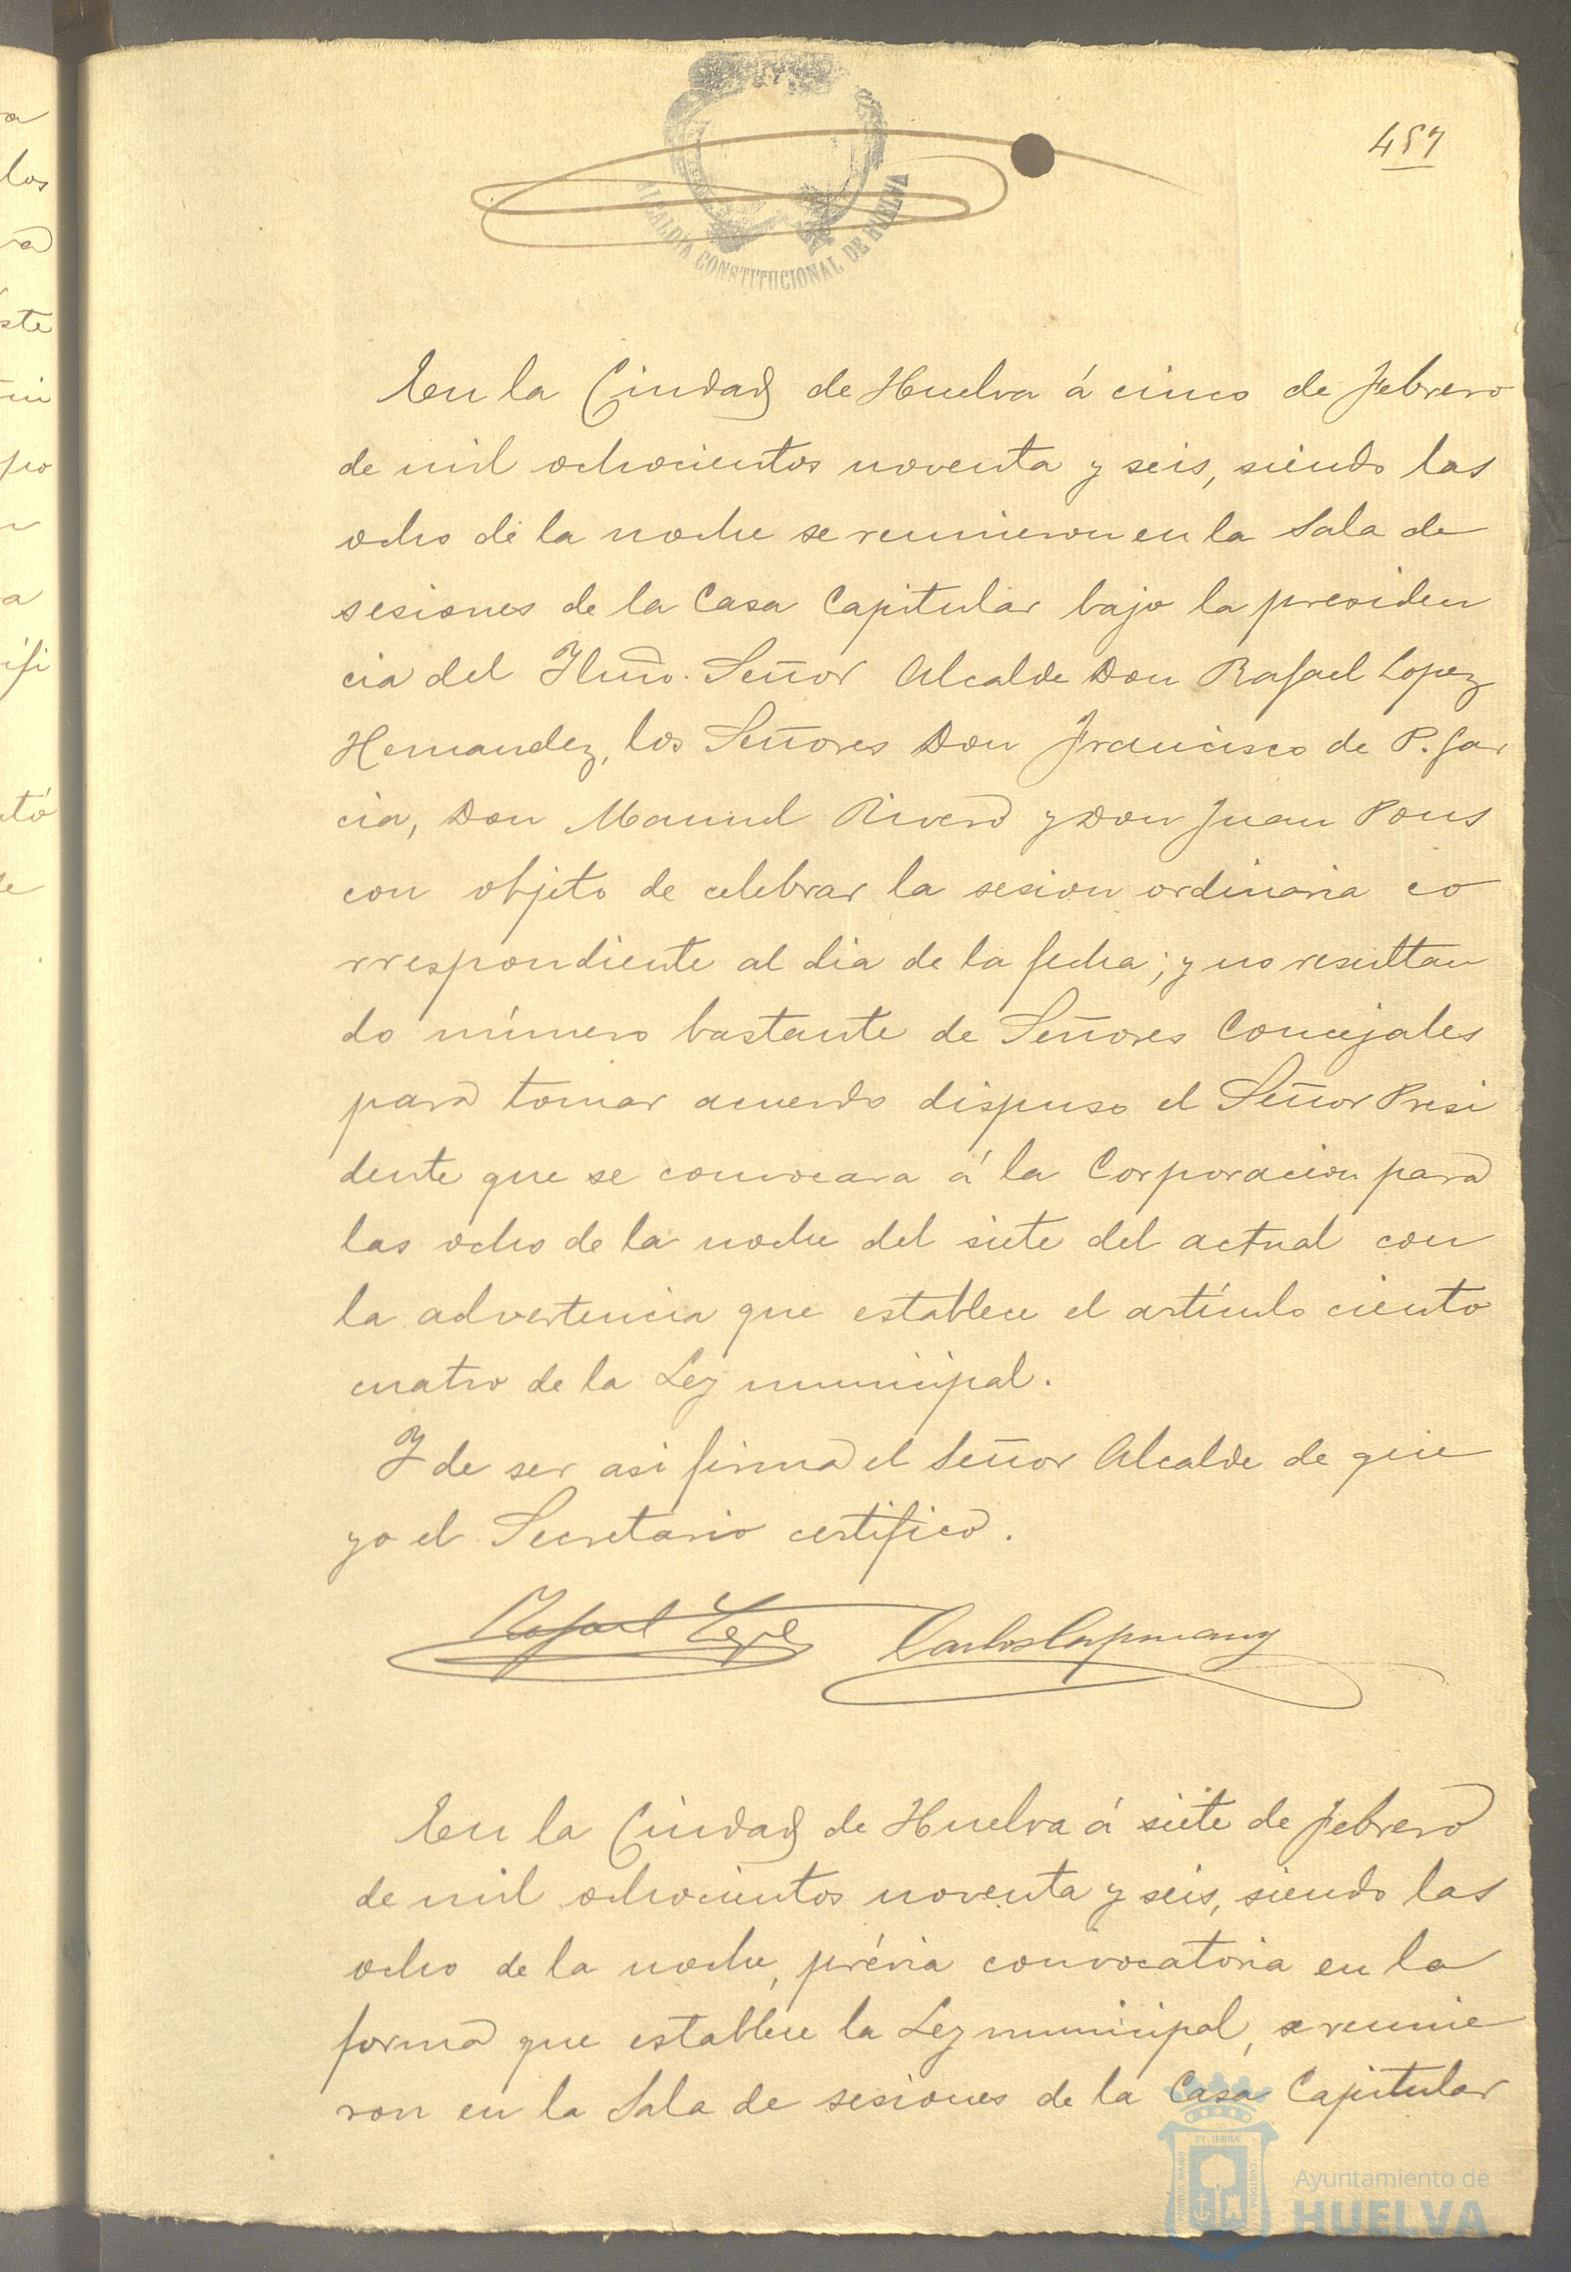 457
ALCALDÍA CONSTITUCIONAL DE HUELVA
En la Ciudad de Huelva á cinco de Febrero
de mil ochocientos noventa y seis, siendo las
ocho de la noche se reunieron en la Sala de
sesiones de la Casa Capitular bajo la presiden
cia del Iltmo. Señor Alcalde Don Rafael Lopez
Hernandez, los Señores Don Francisco de P. Gar
cia, Don Manuel Rivero y Don Juan Pons
con objeto de celebrar la sesion ordinaria co
rrespondiente al dia de la fecha; y no resultan
do número bastante de Señores Concejales
para tomar acuerdo dispuso el Señor Presi
dente que se convocara á la Corporacion para
las ocho de la noche del siete del actual con
la advertencia que establece el artículo ciento
cuatro de la Ley municipal.
Y de ser asi firma el Señor Alcalde de que
yo el Secretario certifico.
Rafael Lopez Carlos Capmany
En la Ciudad de Huelva á siete de Febrero
de mil ochocientos noventa y seis, siendo las
ocho de la noche, prévia convocatoria en la
forma que establece la Ley municipal, se reunie
ron en la Sala de sesiones de la Casa Capitular
Ayuntamiento de
HUELVA